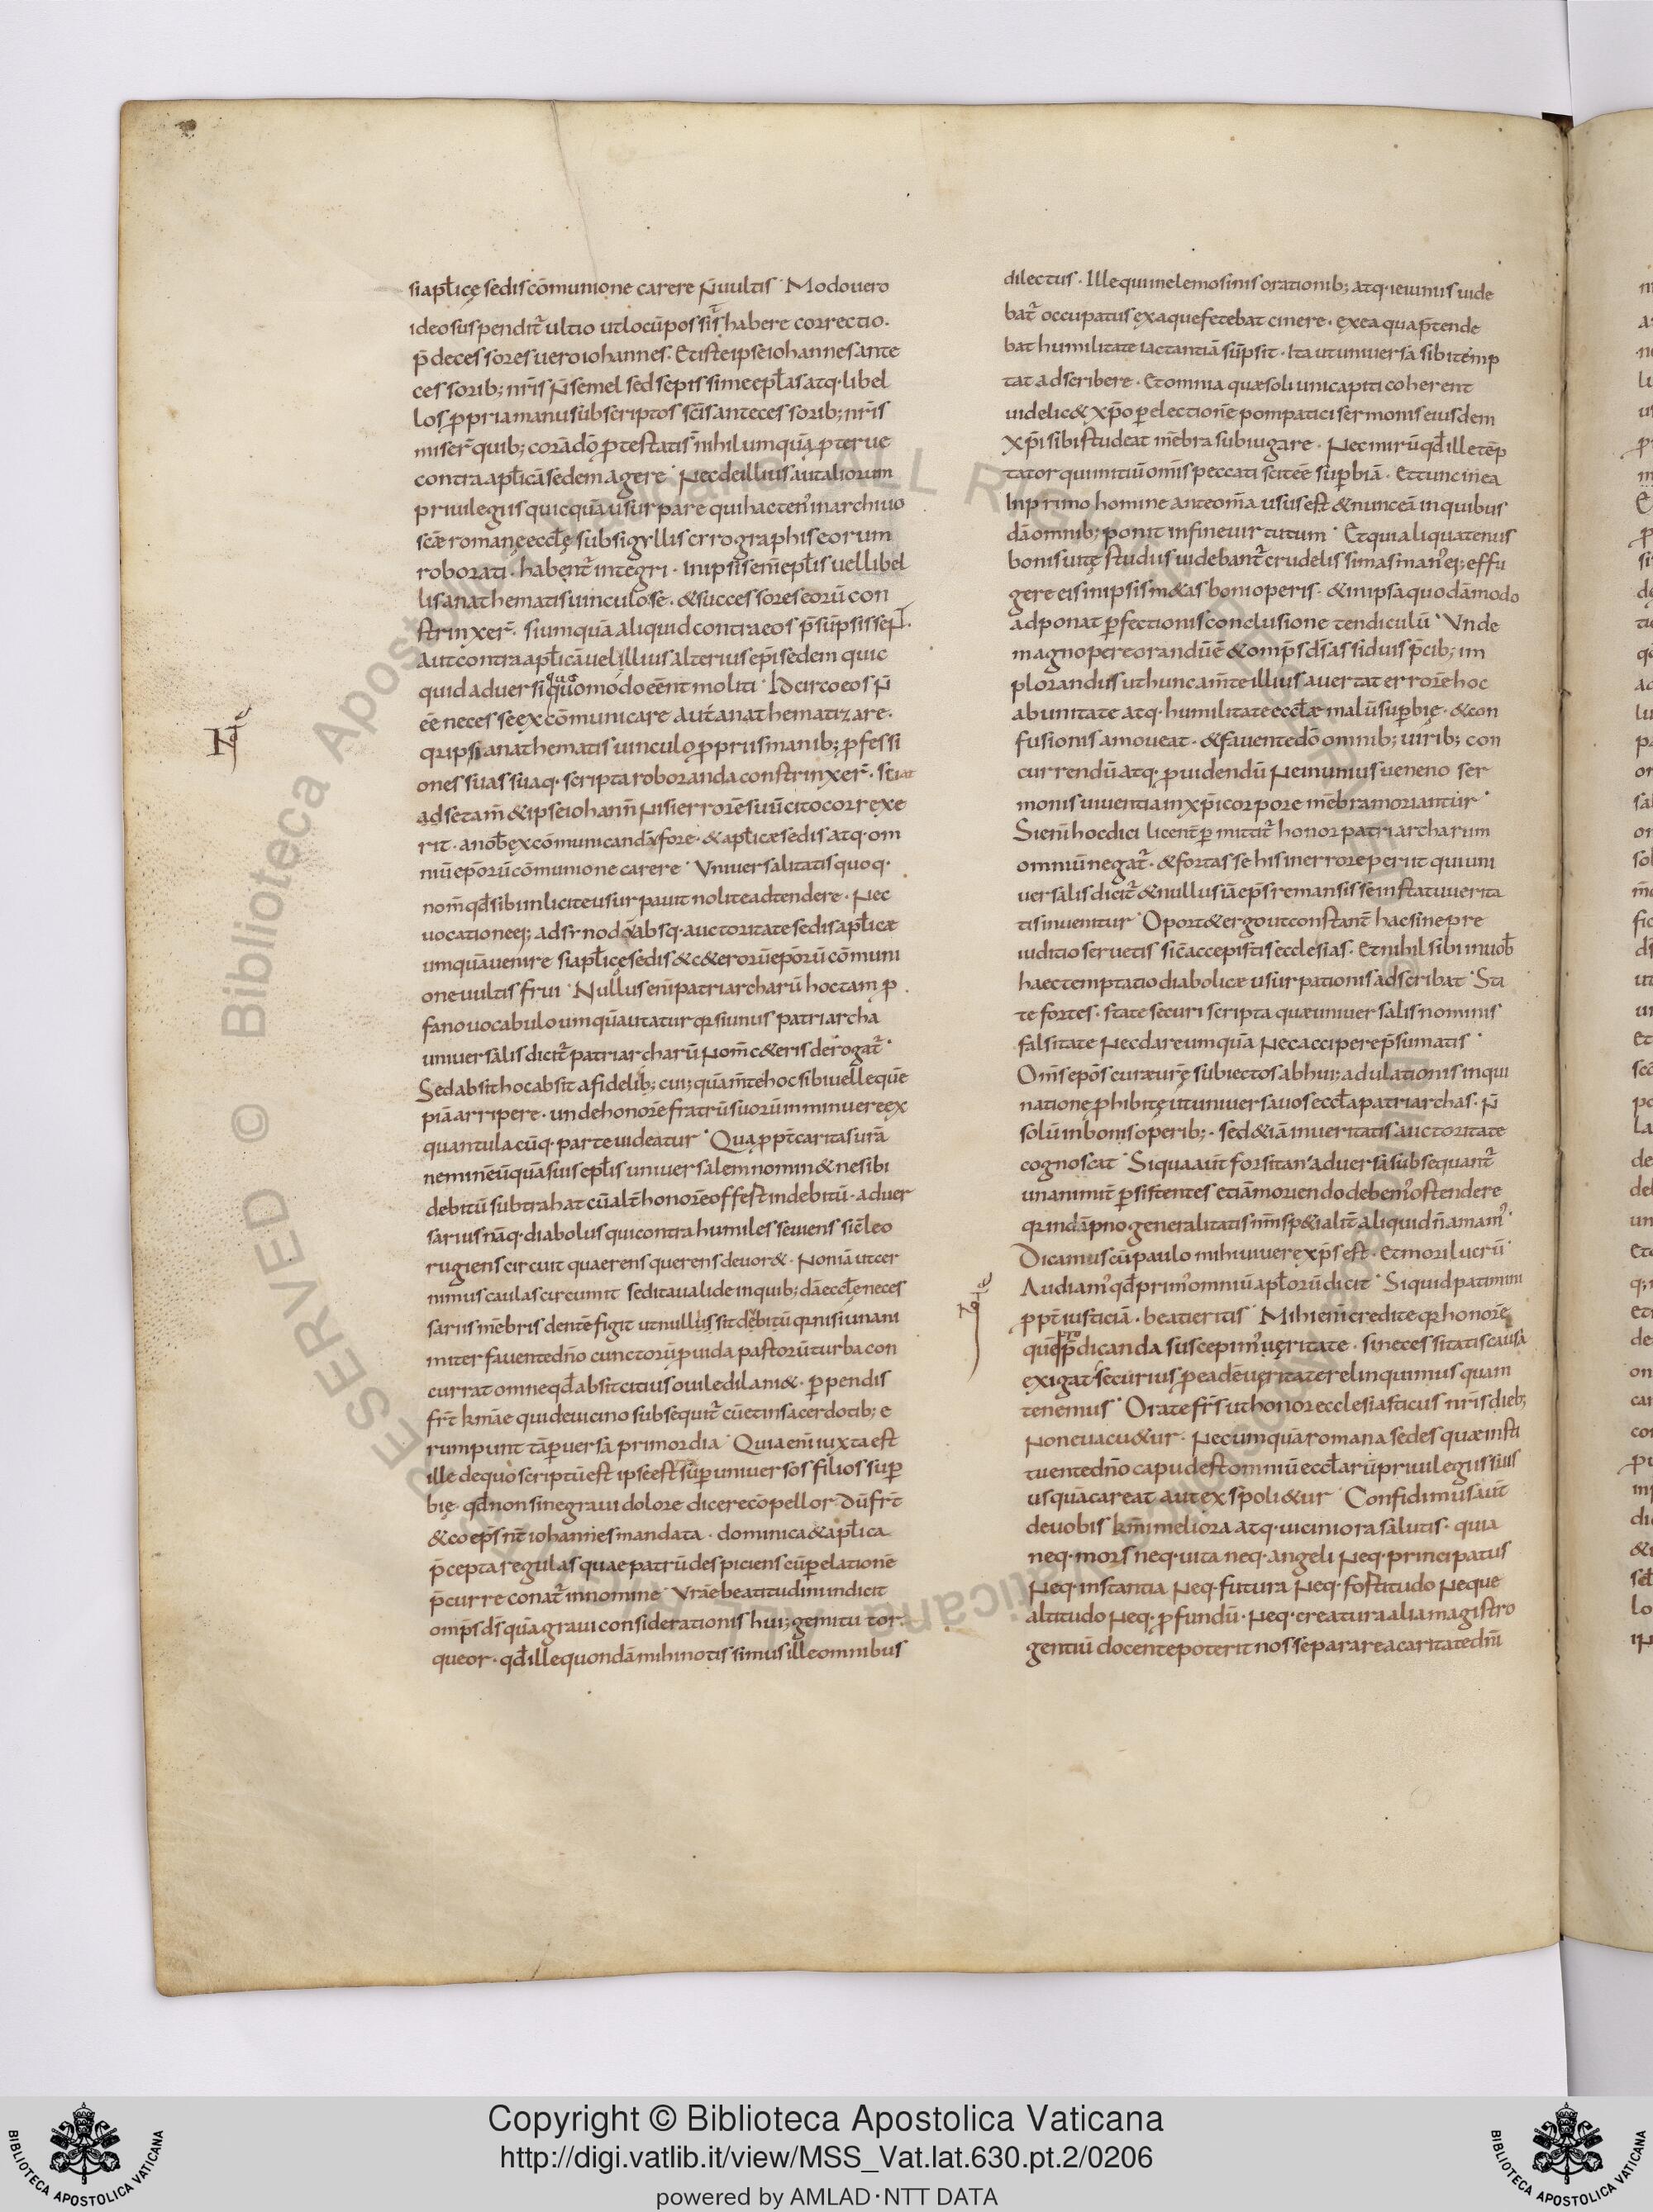 si apl̄icę sedis cōmunione carere N̄ uultis · Modo uero
ideo suspendit᷑ ultio ut locū possit habere correctio.
p̄decessores uero iohannes. Et iste ipse iohannes ante
cessorib; nr̄is N̄ semel sed sepissime epl̄as atq· libel
los ꝓpria manu subscriptos sc̄is antecessorib; nr̄is
miser̄ quib; corā dō ꝓtestatis nihil umquā ꝓterue
contra apl̄icā sedem agere · Nec de illius aut aliorum
priuilegiis quicquā usurpare qui hacten' in archiuo
scæ romanę eccl̄ę sub sigyllis cyrographis eorum
roborati · habent᷑ integri · in ipsis eni̅ epl̄is uel libel
lis anathematis uinculo se · & successores eorū con
strinxer̄ · si umquā aliquid contra eos p̄sūpsissent.
Aut contra apl̄icā uel illius alterius epi̅ sedem quic
quid aduersi quoquomodo eēnt moliti · Idcirco eos N̄
eē necesse excōmunicare aut anathematizare.
qr ipsi anathematis uinculo ꝓpriis manib; ꝓfessi
ones suas suaq· scripta roboranda constrinxer̄ · sciat
ad se tam̄ & ipse iohann̄ Nisi errorē suū cito correxe
rit · a nob̄ excōmunicandū fore · & apl̄icæ sedis atq· om
niū epo̅rū cōmunione carere · Vniuersalitatis quoq·
nom̄ qd̄ sibi inlicite usurpauit nolite adtendere · Nec
uocatione ei; ad synodū absq· auctoritate sedis apl̄icæ
umquā uenire si apl̄icę sedis & c&erorū epo̅rū cōmuni
one uultis frui · Nullus eni̅ patriarcharū hoc tam ꝓ
fano uocabulo umquā utatur qr si unus patriarcha
uniuersalis dicit᷑ patriarcharū Nom̄ c&eris derogat᷑ ·
Sed absit hoc absit a fidelib; cui;quā m̄te hoc sibi uelle quē
piā arripere · unde honorē fratrū suorū inminuere ex
quantulacūq· parte uideatur · Quaꝓpt̄ caritas ur̄a
neminē ūquā suis epl̄is uniuersalem nomin& ne sibi
debitū subtrahat cū alt̄i honorē offert indebitū · aduer
sarius nāq· diabolus qui contra humiles seuiens sic̄ leo
rugiens circuit quaerens querens deuor& · Non iā ut cer
nimus caulas circumit sed ita ualide in quib;dā eccl̄ę neces
sariis mēbris dentē figit ut nullus sit debitū qr nisi unani
miter fauente dn̄o cunctorū ꝓuida pastorū turba con
currat omne qd̄ absit citius ouile dilani& · perpendis
fr̄t kmāe qui de uicino subsequit᷑ cū et in sacerdotib; e
rumpunt tā peruersa primordia · Quia eni̅ iuxta est
ille de quo scriptū est ipse est sup̱ uniuersos filios sup̱
bię · qd̄ non sine graui dolore dicere cōpellor · dū fr̄t
& coep̄s nr̄ iohannes mandata · dominica & apl̄ica
p̄cepta regulas quae patrū despiciens cū pelationē
p̄curre conat᷑ in nomine · Vr̄āe beatitudini indicit
omp̄s ds̄ quā graui considerationis hui; gemitu tor
queor · qd̄ ille quondā mihi notissimus ille omnibus
dilectus · Ille qui in elemosinis orationib; atq· ieiuniis uide
bat᷑ occupatus ex a que fetebat cinere · ex ea qua p̄tende
bat humilitate iactantiā sūpsit · Ita ut uniuersa sibi temp
tat adscribere · Et omnia quæ soli uni capiti coherent
uidelic& xp̄o per electionē pompatici sermonis eiusdem
xp̄i sibi studeat mēbra subiugare · Nec mirū qd̄ ille tēp
tator qui initiū om̄is peccati scit eē sup̱biā · Et tunc in ea
In primo homine ante om̄a usus est & nunc eā in quibus
dā omnib; ponit in fine uirtutum · Et qui aliquatenus
bonis uitę studiis uidebant᷑ crudelissimas man' ei; effu
gere eis in ipsis m&as boni operis · & in ipsa quodāmodo
adponat perfectionis conclusione tendiculū · Vnde
magnopere orandū ē & omp̄s ds̄ assiduis p̄cib; im
plorandus ut hunc a m̄te illius auertat errorē hoc
ab unitate atq· humilitate eccl̄æ malū superbię · & con
fusionis amoueat · & fauente dō omnib; uirib; con
currendū atq· ꝓuidendū Ne in unius ueneno ser
monis uiuentia in xp̄i corpore mēbra moriantur ·
Si eni̅ hoc dici licent̄ permittit᷑ honor patriarcharum
omniū negat᷑ · & fortasse his in errore perit qui uni
uersalis dicit᷑ & nullus iā ep̄s remansisse in statu uerita
tis inuenitur · Oport& ergo ut constant̄ hac sine pre
iuditio seruetis sic̄ accepistis ecclesias · Et nihil sibi in uob̄
haec temptatio diabolicæ usurpationis adscribat · Sta
te fortes · state securi scripta quæ uniuersalis nominis
falsitate Nec dare umquā Nec accipere p̄sumatis ·
Om̄s ep̄os curæ ur̄ę subiectos ab hui; adulationis inqui
natione ꝓhibite ut uniuersa uos eccl̄a patriarchas · N̄
solū in bonis operib; · sed & iā in ueritatis auctoritate
cognoscat · Si qua aut̄ forsitan aduersa subsequant᷑
unanimit̄ persistentes etiā moriendo debem' ostendere
qr in dāpno generalitatis nr̄m sp&ialit̄ aliquid n̄ amam' ·
Dicamus cū paulo mihi uiuere xp̄s est · Et mori lucrū ·
Audiam' qd̄ prim' omniū apl̄orū dicit · Si quid patimini
ꝓpt̄ iusticiā · beati eritis · Mihi eni̅ credite qr honorē
quē pro p̄dicanda suscepim' ueritate · si necessitatis causa
exigat securius ꝓ eadē ueritate relinquimus quam
tenemus · Orate fr̄s ut honor ecclesiasticus nr̄is dieb;
Non euacu&ur · Nec umquā romana sedes quæ insti
tuente dn̄o caput est omniū eccl̄arū priuilegiis suis
usquā careat aut expoli&ur · Confidimus aut̄
de uobis km̄i meliora atq· uiciniora salutis · quia
neq· mors neq· uita neq· angeli Neq· principatus
Neq· instantia Neq· futura Neq· fortitudo Neque
altitudo Neq· ꝓfundū · Neq· creatura alia magistro
gentiū docente poterit nos separare a caritate dn̄i
Copyright © Biblioteca Apostolica Vaticana
http://digi.vatlib.it/view/MSS_Vat.lat.630.pt.2/0206
powered by AMLAD·NTT DATA
BIBLIOTECA APOSTOLICA VATICANA
BIBLIOTECA APOSTOLICA VATICANA